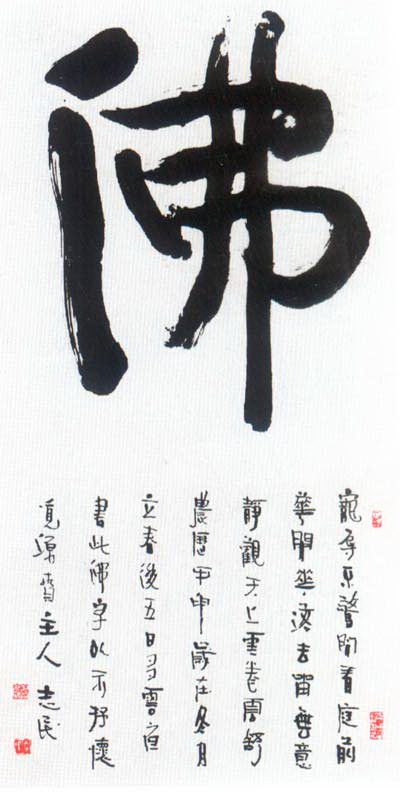 佛
寵辱不驚閒看庭前
華開華落去留無意
靜觀天上雲卷雲舒
農曆甲申歲在冬月
立春後五日
書此佛字以示抒懷
覓源齋主人志民